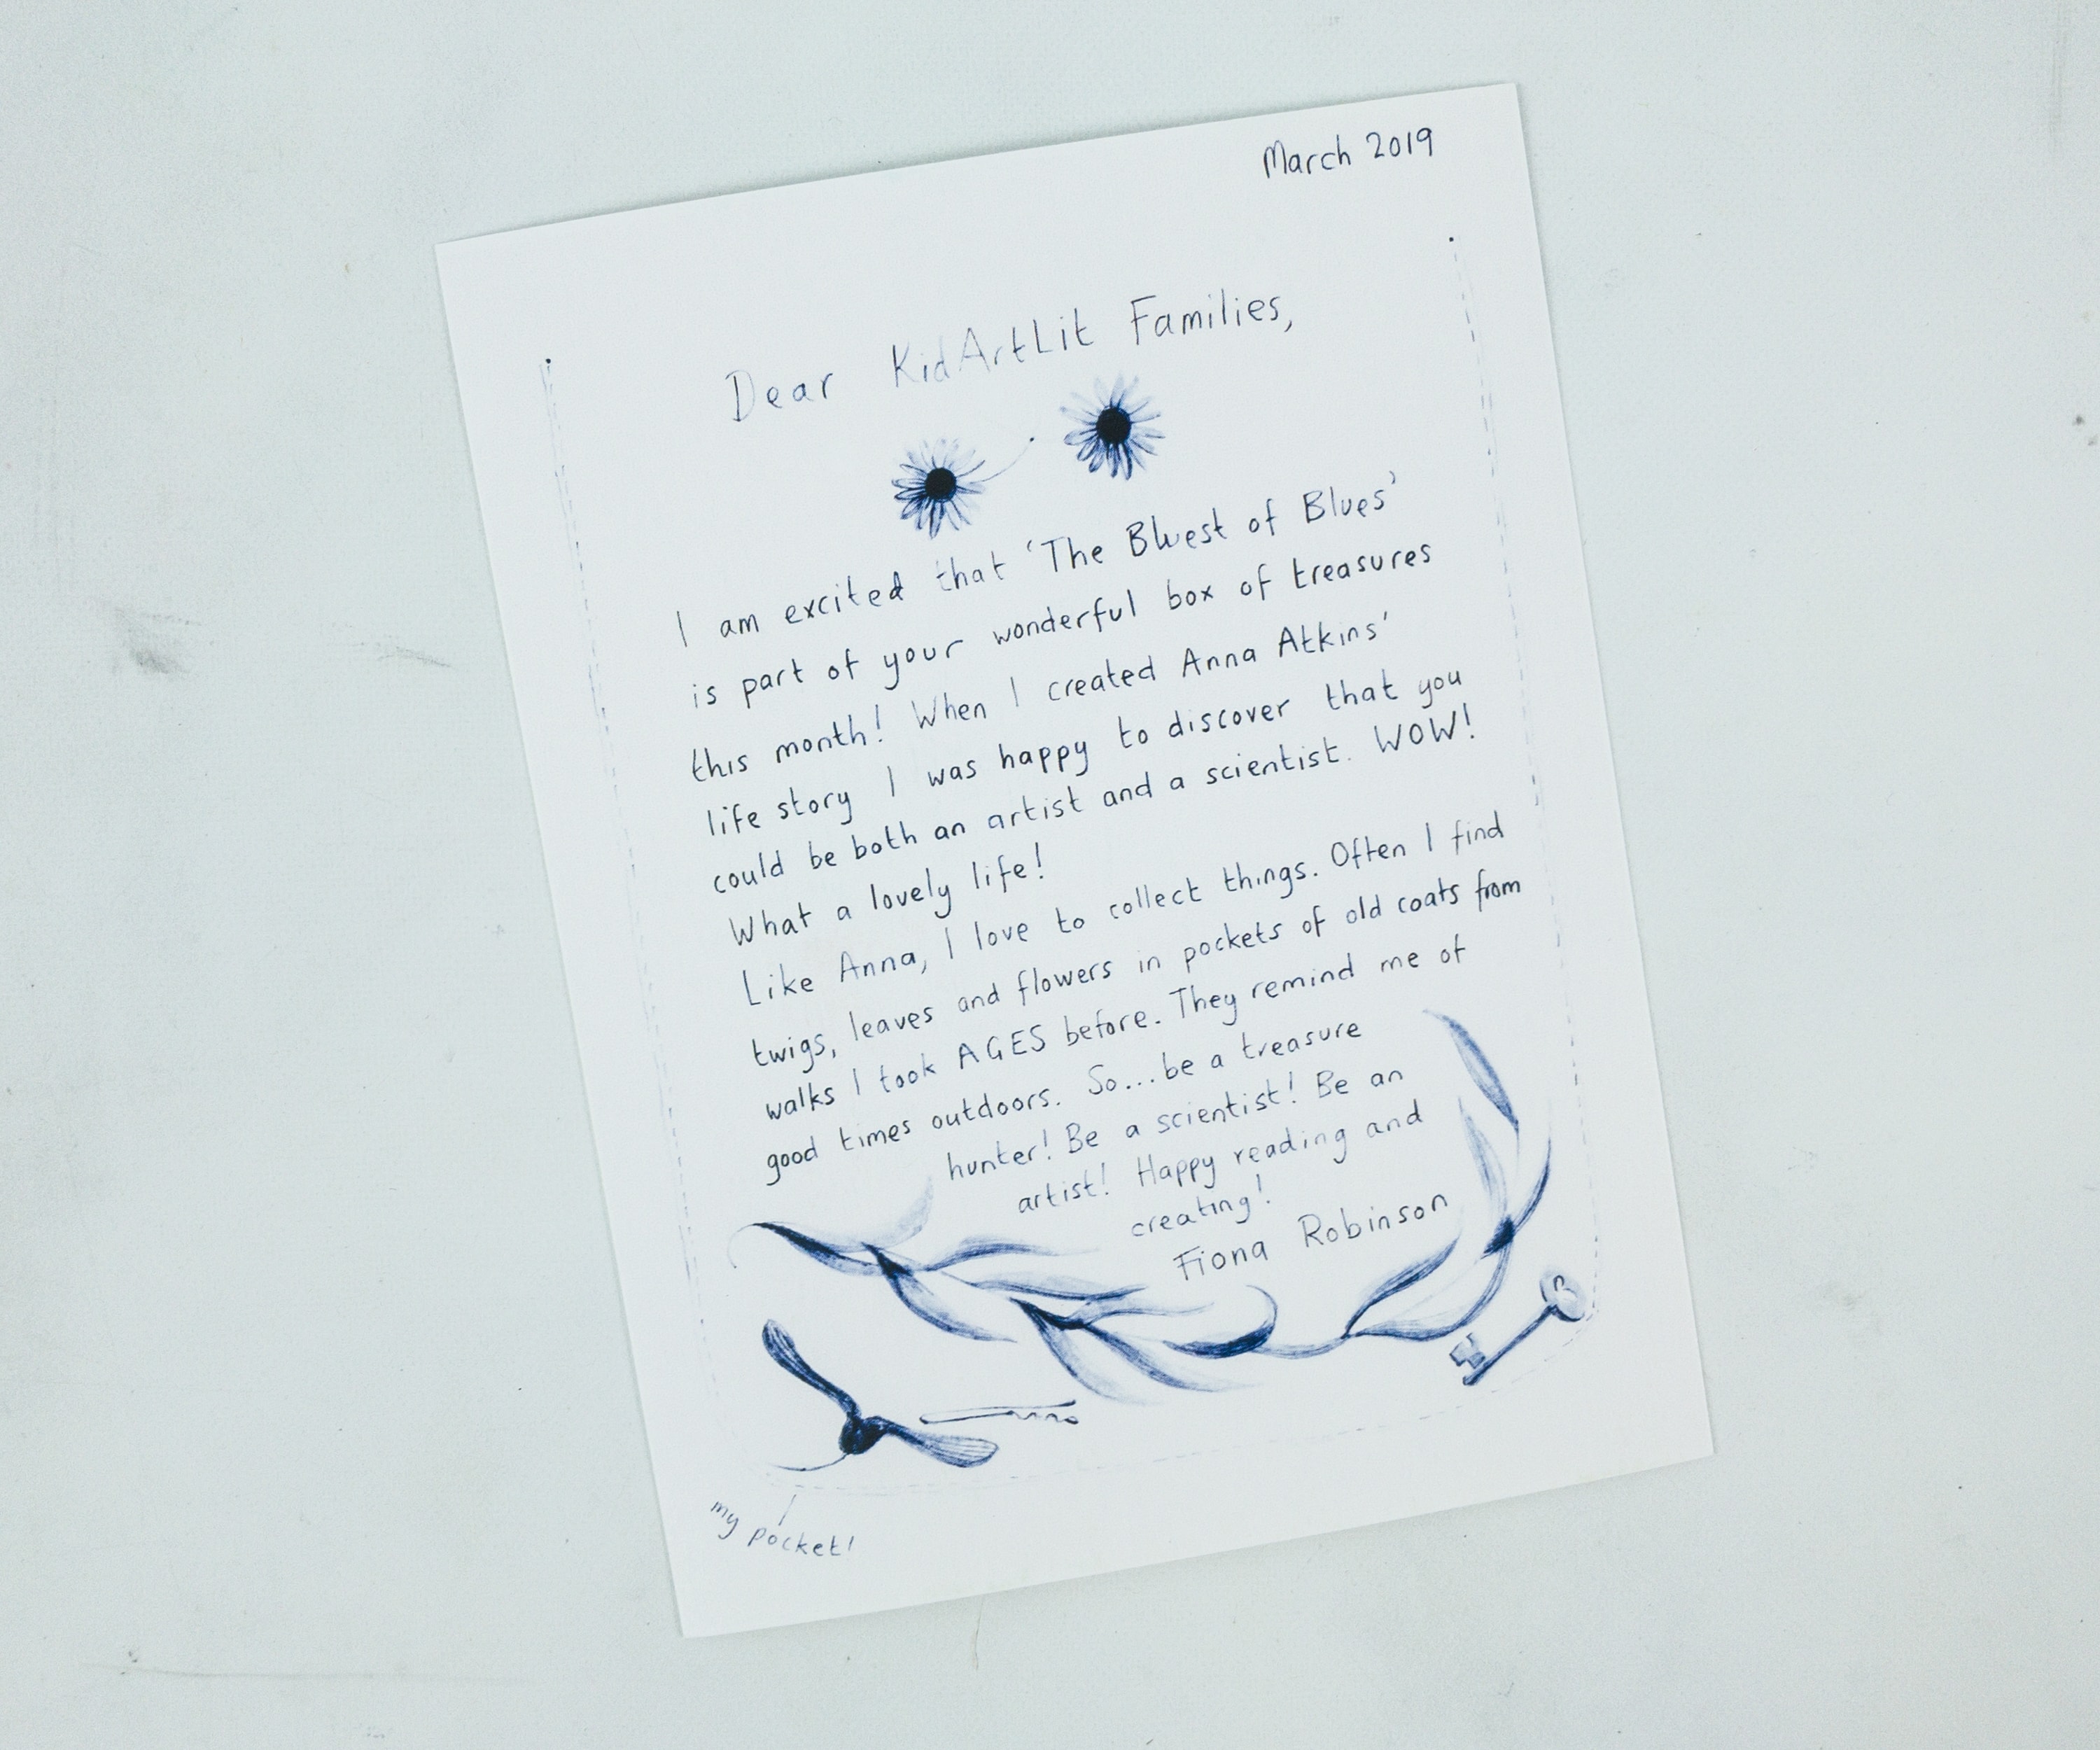 March 2019
Dear KidArtLit Families,
I am excited that 'The Bluest of Blues'
is part of your wonderful box of treasures
this month! When I created Anna Atkins'
life story I was happy to discover that you
could be both an artist and a scientist. WOW!
What a lovely life!
Like Anna, I love to collect things. Often I find
twigs, leaves and flowers in pockets of old coats from
walks I took AGES before. They remind me of
good times outdoors. So...be a treasure
hunter! Be a scientist! Be an
artist! Happy reading and
creating!
Fiona Robinson
my pocket!